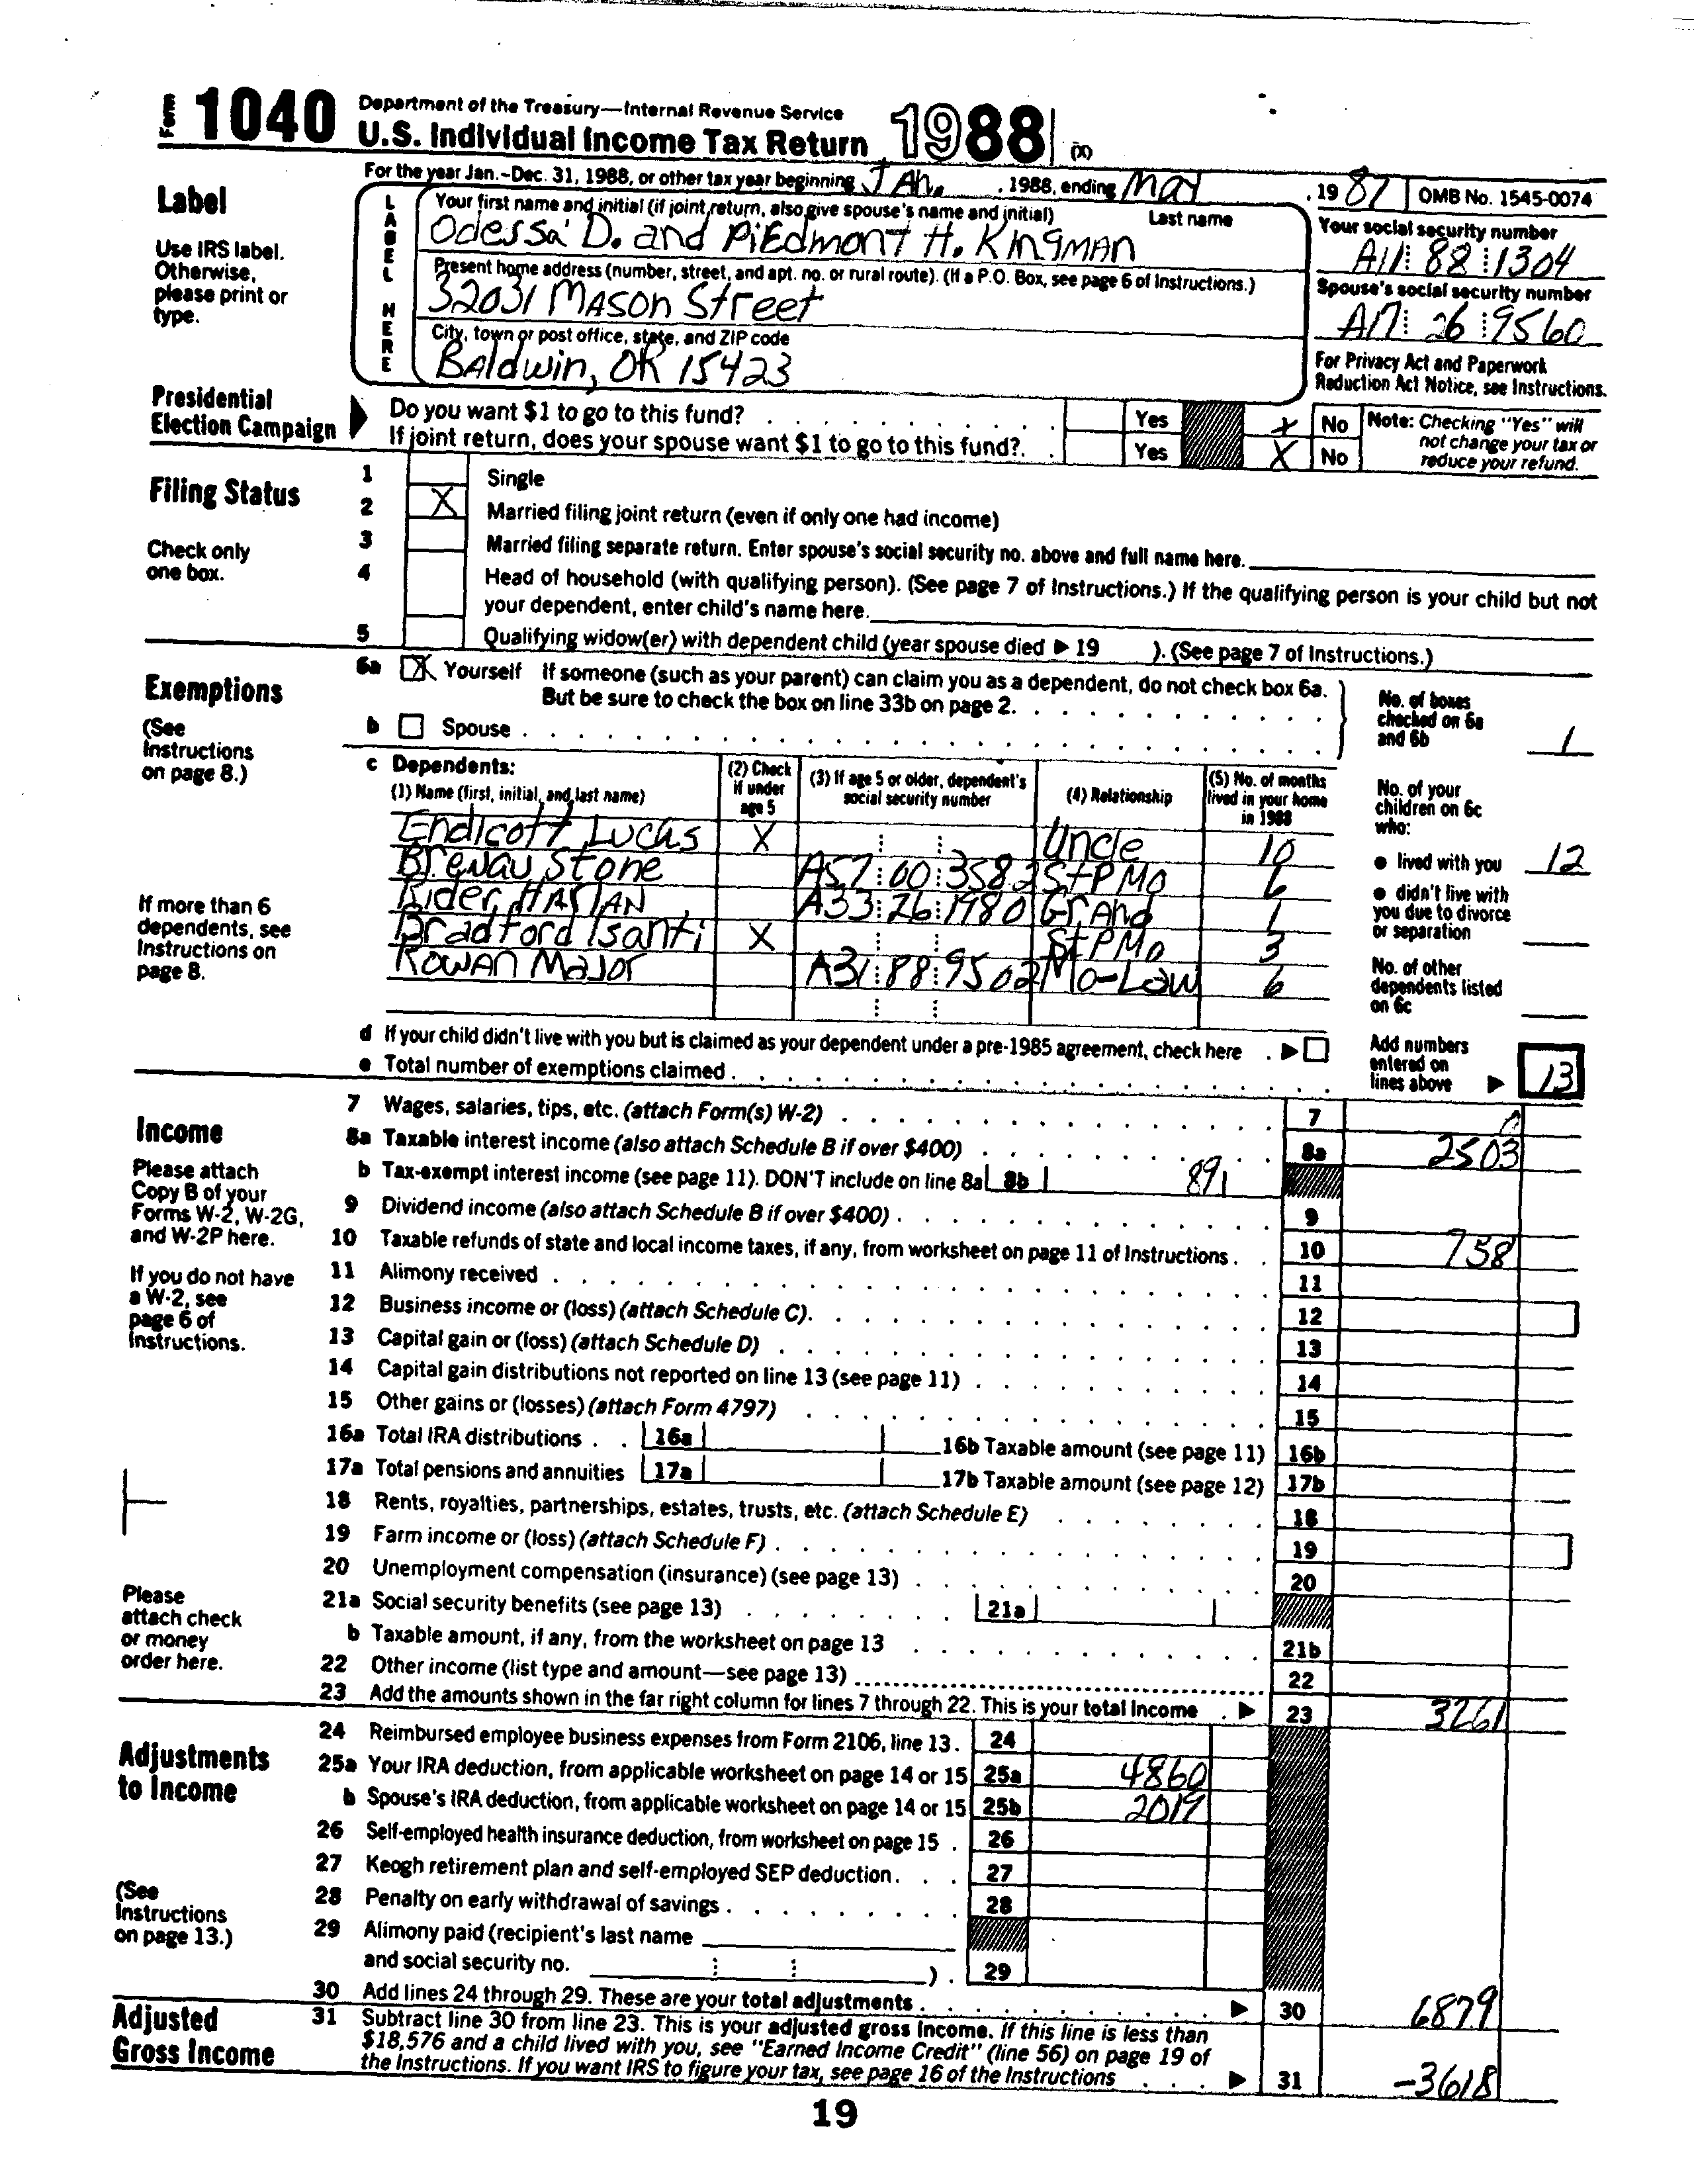 Form 1040 Department of the Treasury—Internal Revenue Service
U.S. Individual Income Tax Return 1988 (X)
For the year Jan.-Dec. 31, 1988, or other tax year beginning JAn. , 1988, ending MAY , 19 87 OMB No. 1545-0074
Label
Use IRS label.
Otherwise,
please print or
type.
LABEL HERE
Your first name and initial (if joint return, also give spouse's name and initial) Last name
Odessa D. and PiEdmonT H. KingMAN
Your social security number
A11 88 1304
Present home address (number, street, and apt. no. or rural route). (If a P.O. Box, see page 6 of Instructions.)
32031 MASon Street
Spouse's social security number
A17 26 9560
City, town or post office, state, and ZIP code
BAldwin, OK 15423
For Privacy Act and Paperwork
Reduction Act Notice, see Instructions.
Presidential
Election Campaign
Do you want $1 to go to this fund? Yes X No
If joint return, does your spouse want $1 to go to this fund? Yes X No
Note: Checking "Yes" will
not change your tax or
reduce your refund.
Filing Status
Check only
one box.
1 Single
2 X Married filing joint return (even if only one had income)
3 Married filing separate return. Enter spouse's social security no. above and full name here.
4 Head of household (with qualifying person). (See page 7 of Instructions.) If the qualifying person is your child but not
your dependent, enter child's name here.
5 Qualifying widow(er) with dependent child (year spouse died ▶ 19 ). (See page 7 of Instructions.)
Exemptions
(See
Instructions
on page 8.)
6a X Yourself If someone (such as your parent) can claim you as a dependent, do not check box 6a.
But be sure to check the box on line 33b on page 2.
b Spouse
No. of boxes
checked on 6a
and 6b 1
c Dependents:
(1) Name (first, initial, and last name)
(2) Check
if under
age 5
(3) If age 5 or older, dependent's
social security number
(4) Relationship
(5) No. of months
lived in your home
in 1988
Endicott Lucas X Uncle 10
Brenau Stone A57 60 3582 StPMo 6
Rider HArlAN A33 26 1980 GrAnd 1
Bradford Isanti X StPMo 3
ROWAN MAJor A31 88 9502 Mo-LAW 6
If more than 6
dependents, see
Instructions on
page 8.
No. of your
children on 6c
who:
● lived with you 12
● didn't live with
you due to divorce
or separation
No. of other
dependents listed
on 6c
d If your child didn't live with you but is claimed as your dependent under a pre-1985 agreement, check here ▶
e Total number of exemptions claimed
Add numbers
entered on
lines above ▶ 13
Income
Please attach
Copy B of your
Forms W-2, W-2G,
and W-2P here.
If you do not have
a W-2, see
page 6 of
Instructions.
7 Wages, salaries, tips, etc. (attach Form(s) W-2) 7 0
8a Taxable interest income (also attach Schedule B if over $400) 8a 2503
b Tax-exempt interest income (see page 11). DON'T include on line 8a 8b 891
9 Dividend income (also attach Schedule B if over $400) 9
10 Taxable refunds of state and local income taxes, if any, from worksheet on page 11 of Instructions 10 758
11 Alimony received 11
12 Business income or (loss) (attach Schedule C) 12
13 Capital gain or (loss) (attach Schedule D) 13
14 Capital gain distributions not reported on line 13 (see page 11) 14
15 Other gains or (losses) (attach Form 4797) 15
16a Total IRA distributions 16a 16b Taxable amount (see page 11) 16b
17a Total pensions and annuities 17a 17b Taxable amount (see page 12) 17b
18 Rents, royalties, partnerships, estates, trusts, etc. (attach Schedule E) 18
19 Farm income or (loss) (attach Schedule F) 19
20 Unemployment compensation (insurance) (see page 13) 20
21a Social security benefits (see page 13) 21a
b Taxable amount, if any, from the worksheet on page 13 21b
22 Other income (list type and amount—see page 13) 22
23 Add the amounts shown in the far right column for lines 7 through 22. This is your total income ▶ 23 3261
Please
attach check
or money
order here.
Adjustments
to Income
(See
Instructions
on page 13.)
24 Reimbursed employee business expenses from Form 2106, line 13. 24
25a Your IRA deduction, from applicable worksheet on page 14 or 15 25a 4860
b Spouse's IRA deduction, from applicable worksheet on page 14 or 15 25b 2019
26 Self-employed health insurance deduction, from worksheet on page 15 26
27 Keogh retirement plan and self-employed SEP deduction 27
28 Penalty on early withdrawal of savings 28
29 Alimony paid (recipient's last name
and social security no. ) 29
30 Add lines 24 through 29. These are your total adjustments ▶ 30 6879
Adjusted
Gross Income
31 Subtract line 30 from line 23. This is your adjusted gross income. If this line is less than
$18,576 and a child lived with you, see "Earned Income Credit" (line 56) on page 19 of
the Instructions. If you want IRS to figure your tax, see page 16 of the Instructions ▶ 31 -3618
19